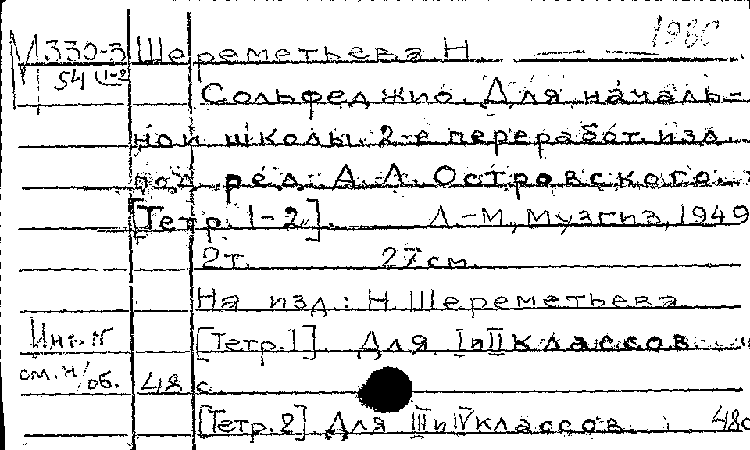 1980
М330-3 Шереметьева Н.
54 (1-2)
Сольфеджио. Для началь-
ной школы. 2-е переработ. изд.
под ред. А. Л. Островского.
[Тетр. 1-2]. Л.-М., Музгиз, 1949
2т. 27 см.
На изд.: Н. Шереметьева
Инв. N [Тетр. 1]. Для I и II классов.
см. н/об. 48 с.
[Тетр. 2] Для III и IV классов. 48с